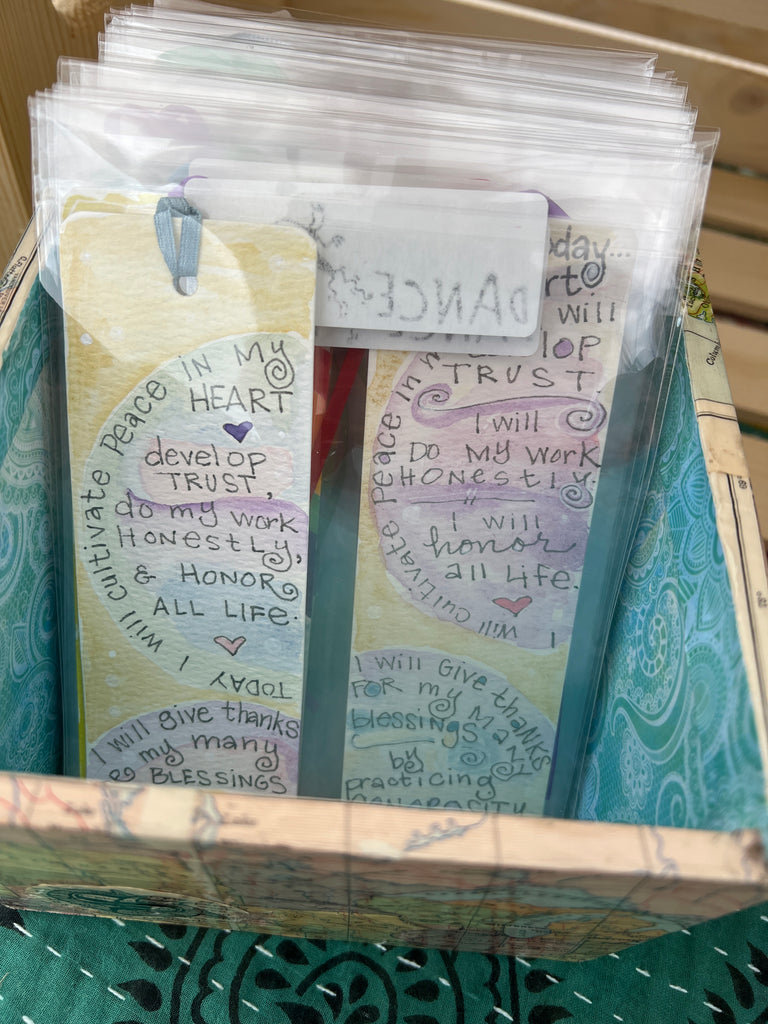 TODAY
I will cultivate Peace in My
HEART
develop
TRUST,
do my work
Honestly,
& HONOR
ALL LIFE.
I will give thanks
my many
BLESSINGS
DANCE
oday...
rt
will
lop
TRUST
I will
DO MY WORK
HONESTLY.
I will
honor
all life.
I will cultivate Peace in
I will Give thanks
FOR my MANY
blessings
by
practicing
GENEROSITY